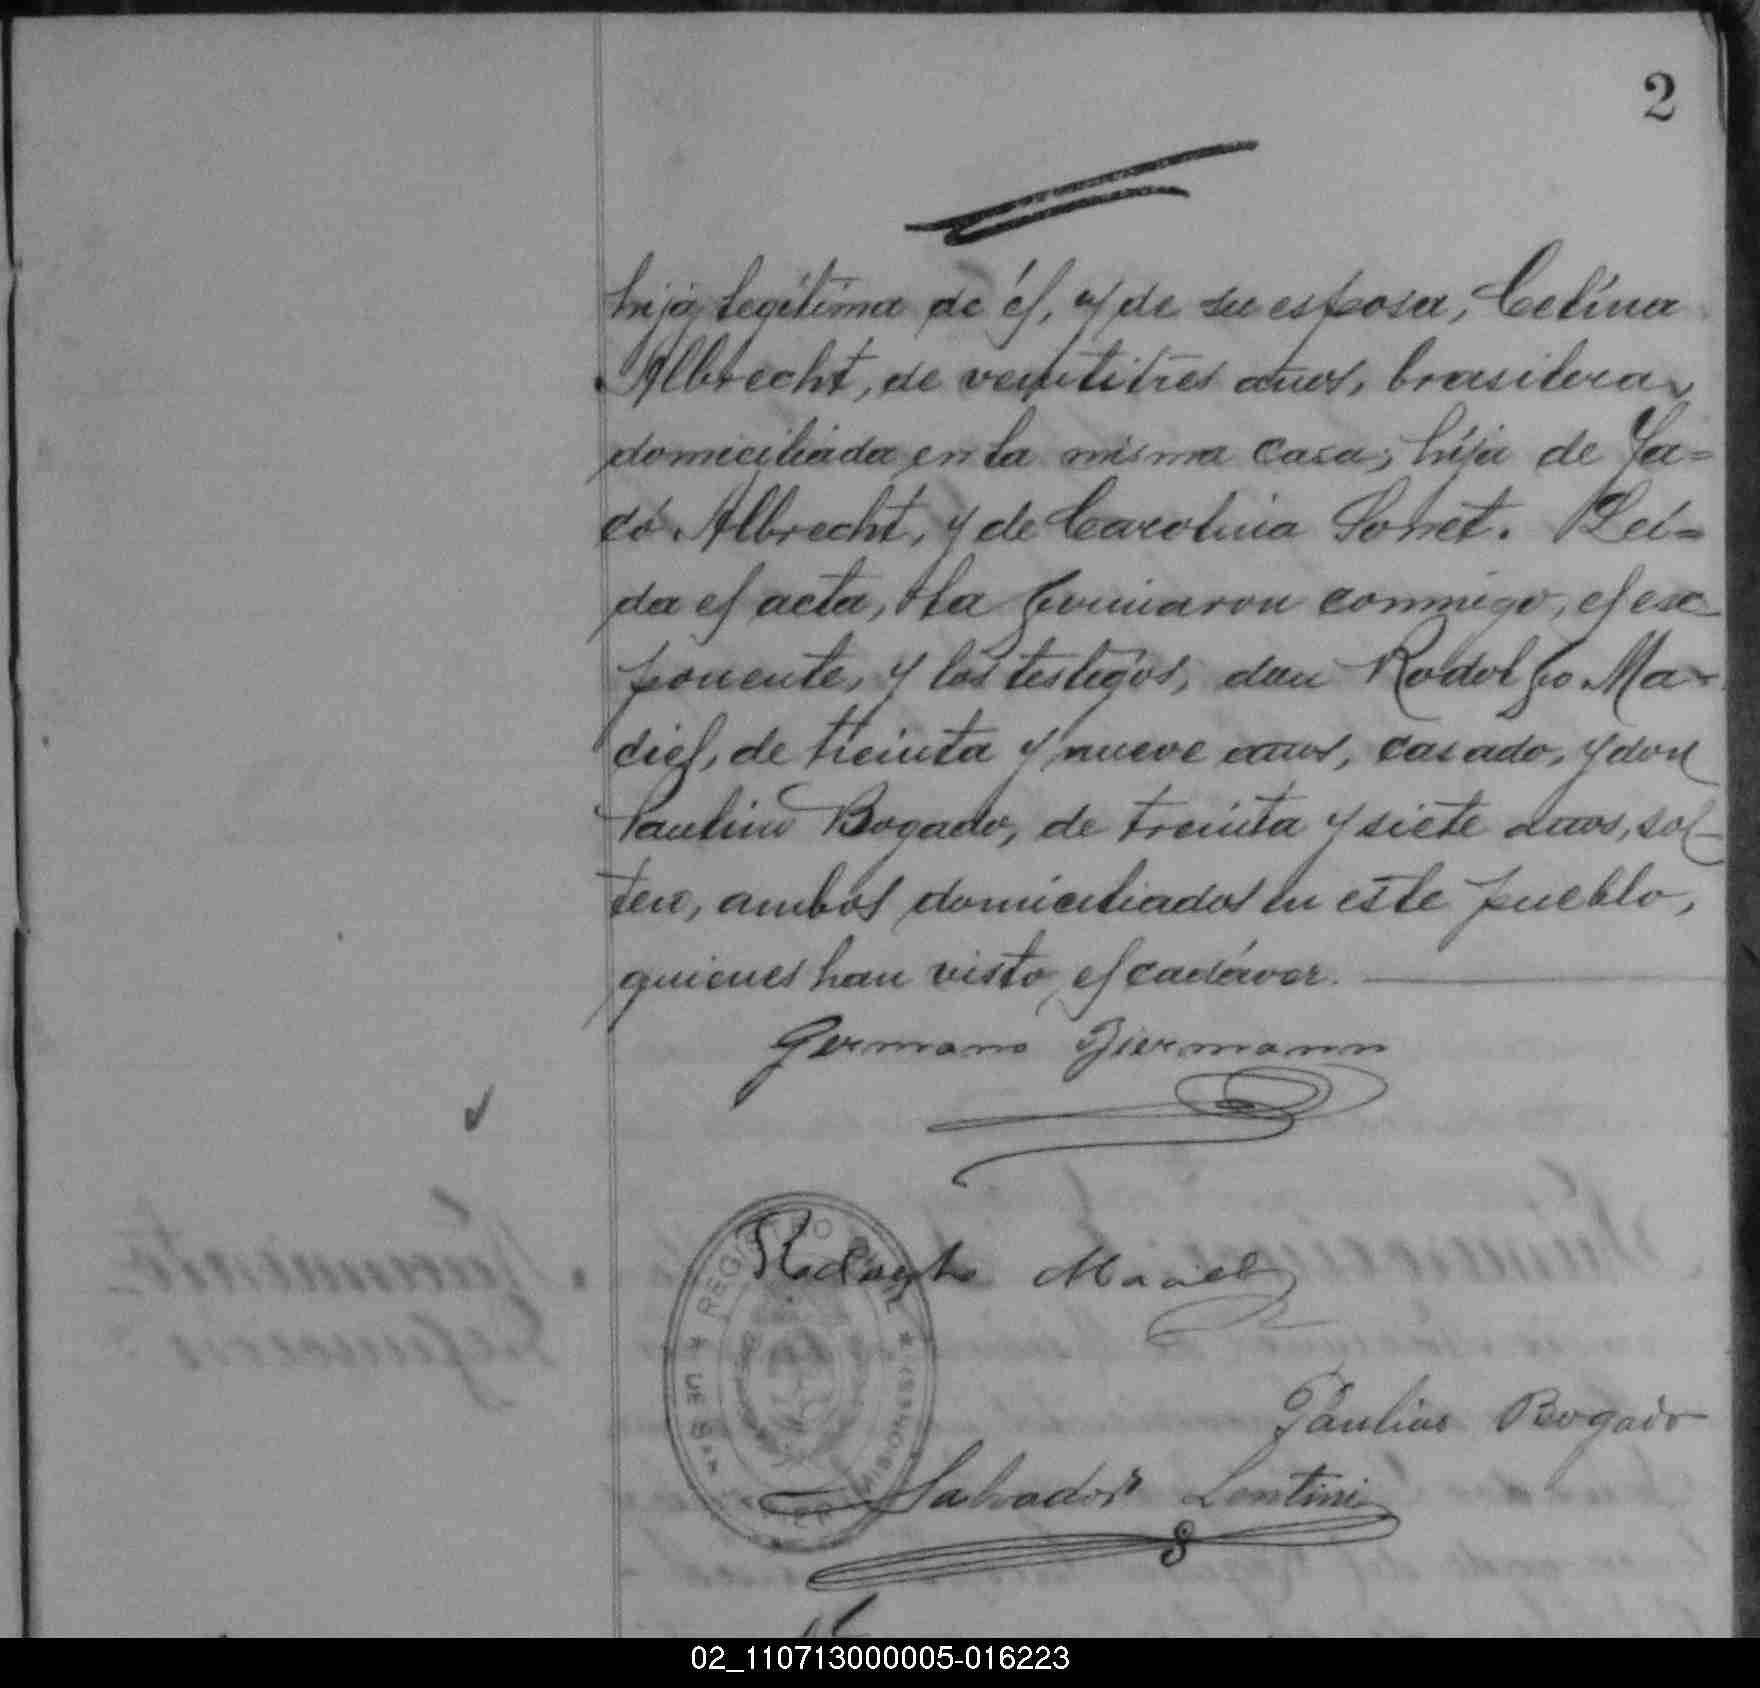 2
hija legítima de él, y de su esposa, Celina
Albrecht, de veintitres años, brasilera,
domiciliada en la misma casa, hija de Ja=
có Albrecht, y de Carolina Sonet. Leí=
da el acta, la firmaron conmigo, el ex-
ponente, y los testigos, don Rodolfo Ma-
ciel, de treinta y nueve años, casado, y don
Paulino Bogado, de treinta y siete años, sol-
tero, ambos domiciliados en este pueblo,
quienes han visto el cadáver.
Germano Biermann
Rodolfo Maciel
REGISTRO CIVIL
DE SAN JAVIER (MISIONES)
Paulino Bogado
Salvador Lentini
02_110713000005-016223